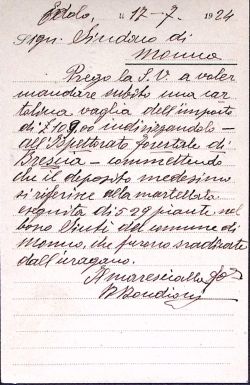 Edolo, li 17-7 1924
Sign. Sindaco di
Monno
Prego la S.V. a voler
mandare subito una car
tolina vaglia dell'importo
di £ 109,00 indirizzandolo
all'Ispettorato forestale di
Brescia - commettendo
che il deposito medesimo
si riferisce alla martellata
eseguita di 529 piante nel
bosco del comune di
Monno, che furono sradicate
dall'uragano.
Il maresciallo
B Bondioni